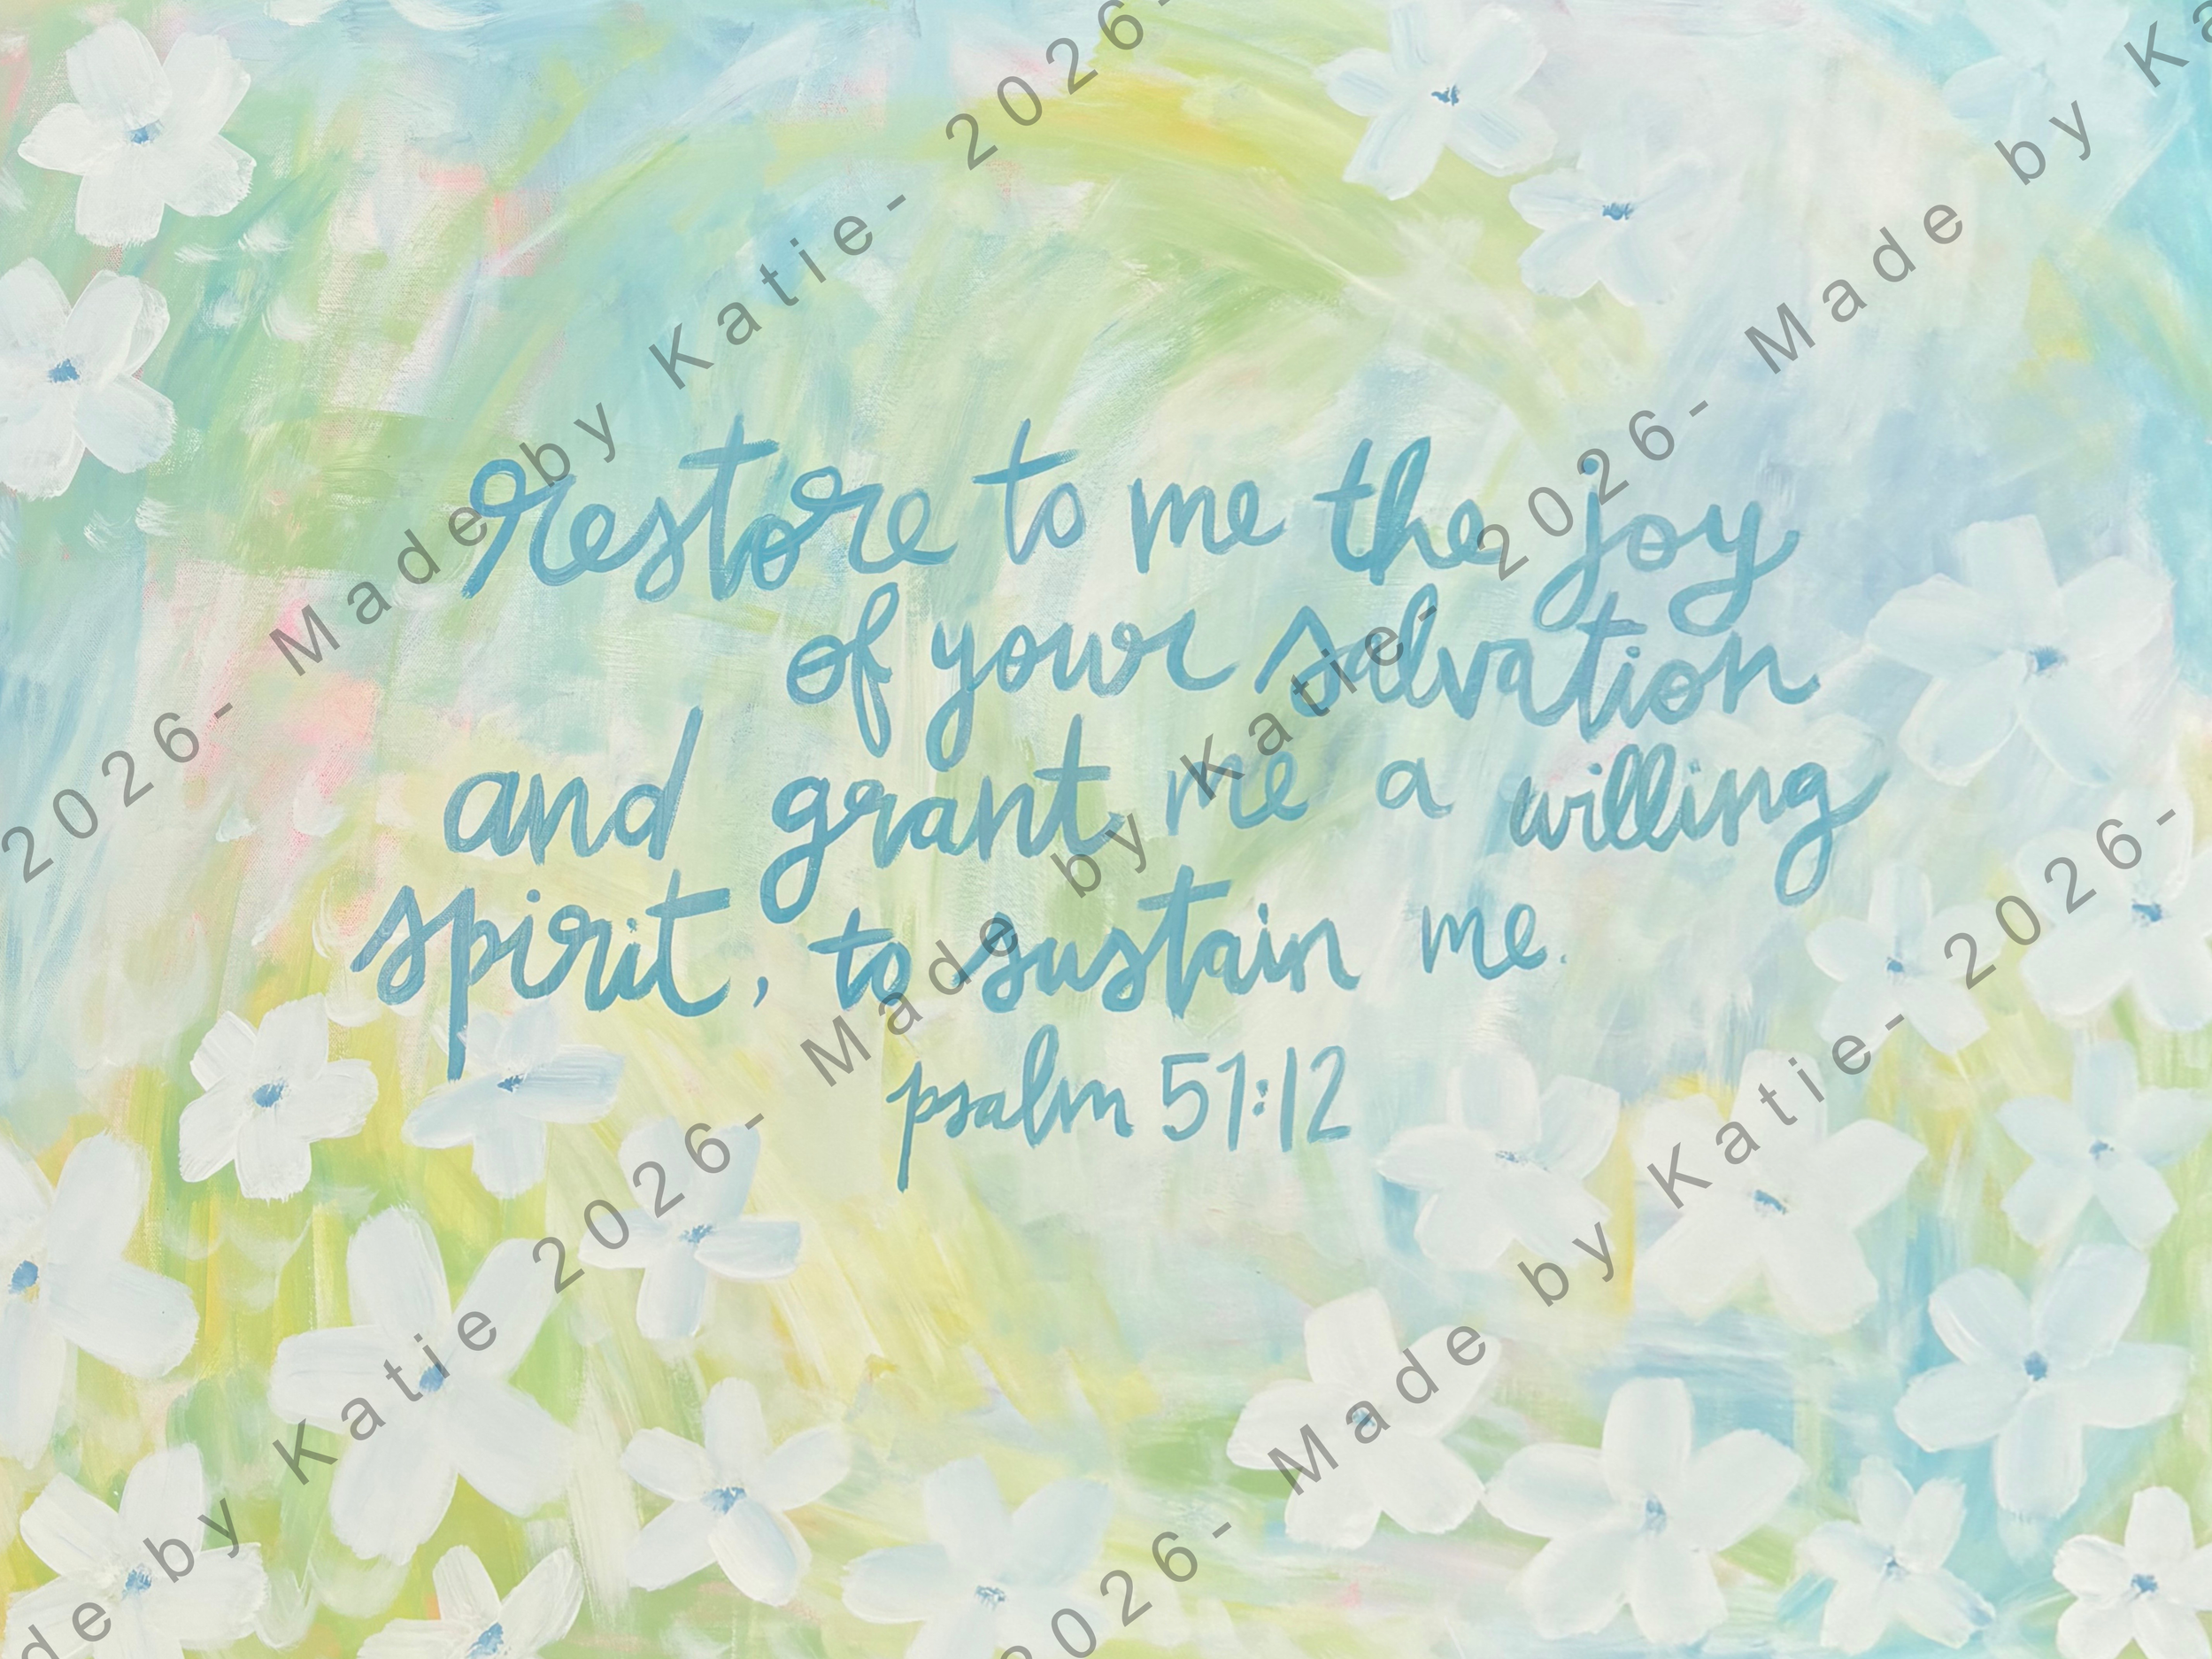 restore to me the joy
of your salvation
and grant me a willing
spirit, to sustain me.
psalm 51:12
2026- Made by Katie- 2026-
2026- Made by Katie- 2026- Made by Ka
de by Katie 2026- Made by Katie- 2026- Made by Ka
2026- Made by Katie- 2026-